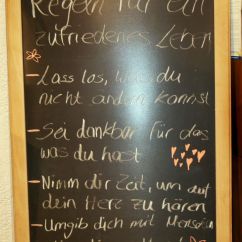 Regeln für ein
zufriedenes Leben
- Lass los, was du
nicht ändern kannst
- Sei dankbar für das
was du hast
- Nimm dir Zeit, um auf
dein Herz zu hören
- Umgib dich mit Menschen